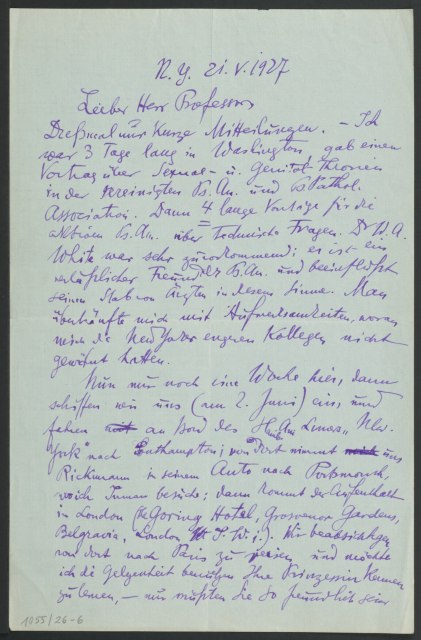 N. Y. 21. V. 1927
Lieber Herr Professor
Diesmal nur kurze Mitteilungen. – Ich
war 3 Tage lang in Washington gab einen
Vortrag über Sexual- u. Genital-theorien
in der vereinigten Ps. An. und Ps Pathol.
Association. Dann 4 lange Vorträge für die
Ps. An. über technische Fragen. Dr W. A.
White war sehr zuvorkommend; es ist ein
verläßlicher Freund der Ps. An. und beeinflußt
seinen Stab von Ärzten in diesem Sinne. Man
überhäufte mich mit Aufmerksamkeiten, woran
mich die New Yorker engeren Kollegen nicht
gewöhnt hatten.
Nun nur noch eine Woche hier, dann
schiffen wir uns (am 2. Juni) ein, und
fahren an Bord des Lines „New-
York" nach Southampton; von dort nimmt uns
Rickmann in seinem Auto nach Portsmouth,
wo ich besuche; dann kommt der Aufenthalt
in London (The Goring Hotel, Grosvenor Gardens,
Belgravia, London S. W. 1.). Wir beabsichtigen
von dort nach Paris zu reisen und möchte
ich die Gelegenheit benutzen Ihre Prinzessin kennen
zu lernen, – nur müßten Sie so freundlich sein
1055/26-6